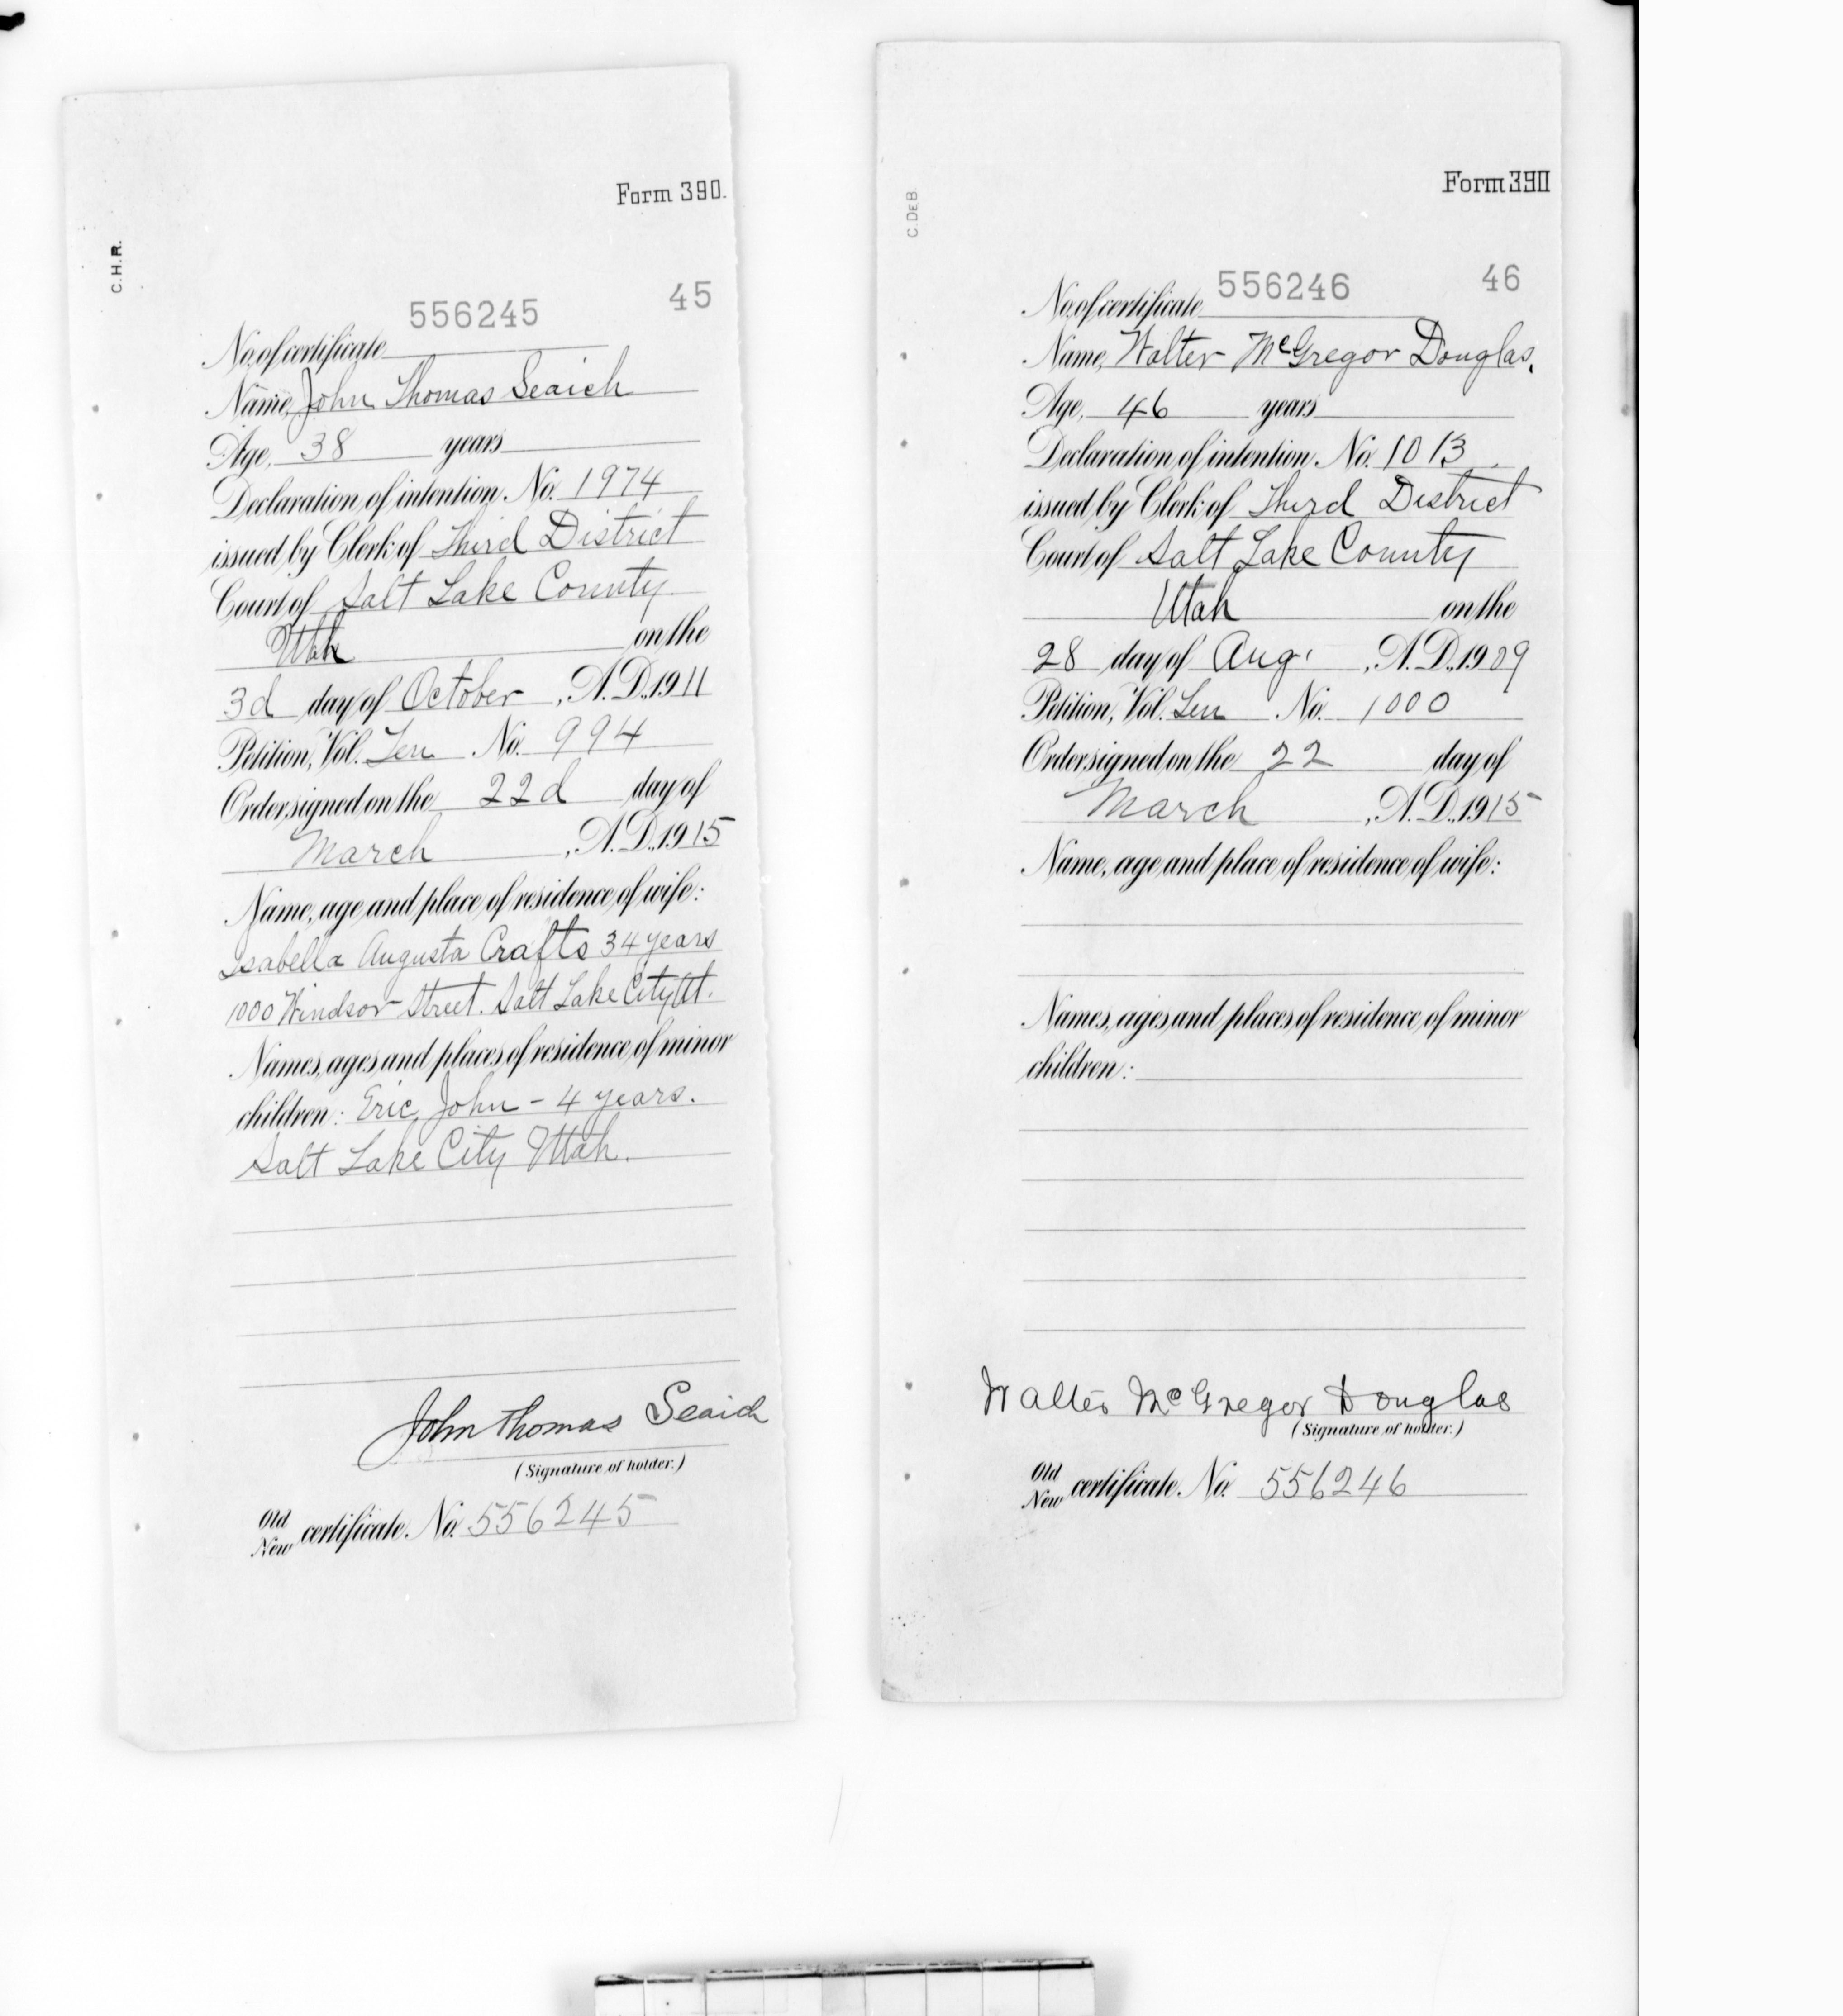 Form 390.
C.H.R.
No. of certificate 556245 45
Name, John Thomas Seaich
Age, 38 years
Declaration of intention, No. 1974
issued by Clerk of Third District
Court of Salt Lake County
Utah on the
3d day of October, A.D. 1911
Petition, Vol. Ten No. 994
Order signed on the 22d day of
March, A.D. 1915
Name, age and place of residence of wife:
Isabella Augusta Crafts 34 years
1000 Windsor Street. Salt Lake City Ut.
Names, ages and places of residence of minor
children: Eric John - 4 years.
Salt Lake City Utah.
John Thomas Seaich
(Signature of holder.)
Old
New certificate. No. 556245
Form 390
C.DEB
No. of certificate 556246 46
Name, Walter McGregor Douglas.
Age, 46 years
Declaration of intention, No. 1013
issued by Clerk of Third District
Court of Salt Lake County
Utah on the
28 day of Aug., A.D. 1909
Petition, Vol. Ten No. 1000
Order signed on the 22 day of
March, A.D. 1915
Name, age and place of residence of wife:
Names, ages and places of residence of minor
children:
Walter McGregor Douglas
(Signature of holder.)
Old
New certificate. No. 556246